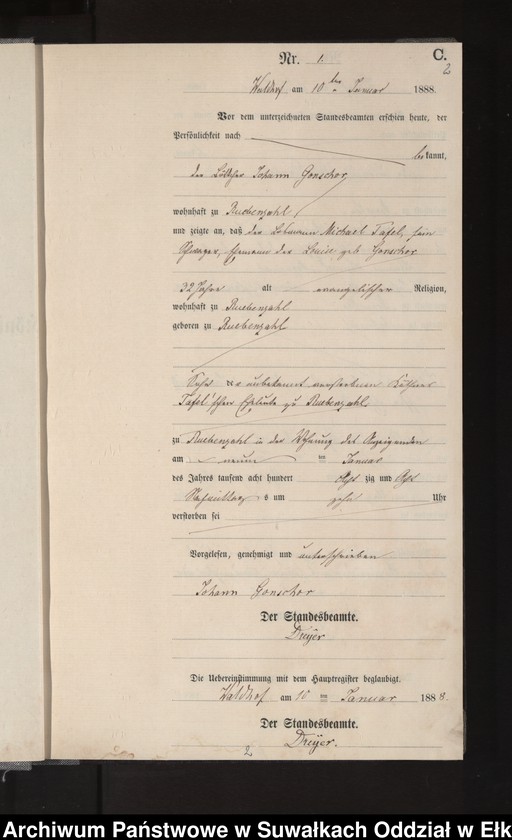 C.
2
Nr. 1.
Waldhof am 10ten Januar 1888.
Vor dem unterzeichneten Standesbeamten erschien heute, der
Persönlichkeit nach
bekannt,
der Käthner Johann Gonschor
wohnhaft zu Ruebenzahl,
und zeigte an, daß der Losmann Michael Tafel, sein
Schwager, Ehemann der Louise geb Gonschor
32 Jahre alt evangelischer Religion,
wohnhaft zu Ruebenzahl
geboren zu Ruebenzahl
Sohn der unbekannt verstorbenen Käthner
Tafel'schen Eheleute zu Ruebenzahl,
zu Ruebenzahl in der Wohnung des Anzeigenden
am neunten Januar
des Jahres tausend acht hundert achtzig und acht
Nachmittags um zehn Uhr
verstorben sei
Vorgelesen, genehmigt und unterschrieben
Johann Gonschor
Der Standesbeamte.
Dreyer
Die Uebereinstimmung mit dem Hauptregister beglaubigt.
Waldhof am 10 Januar 1888.
Der Standesbeamte.
Dreyer.
2
Archiwum Państwowe w Suwałkach Oddział w Ełk